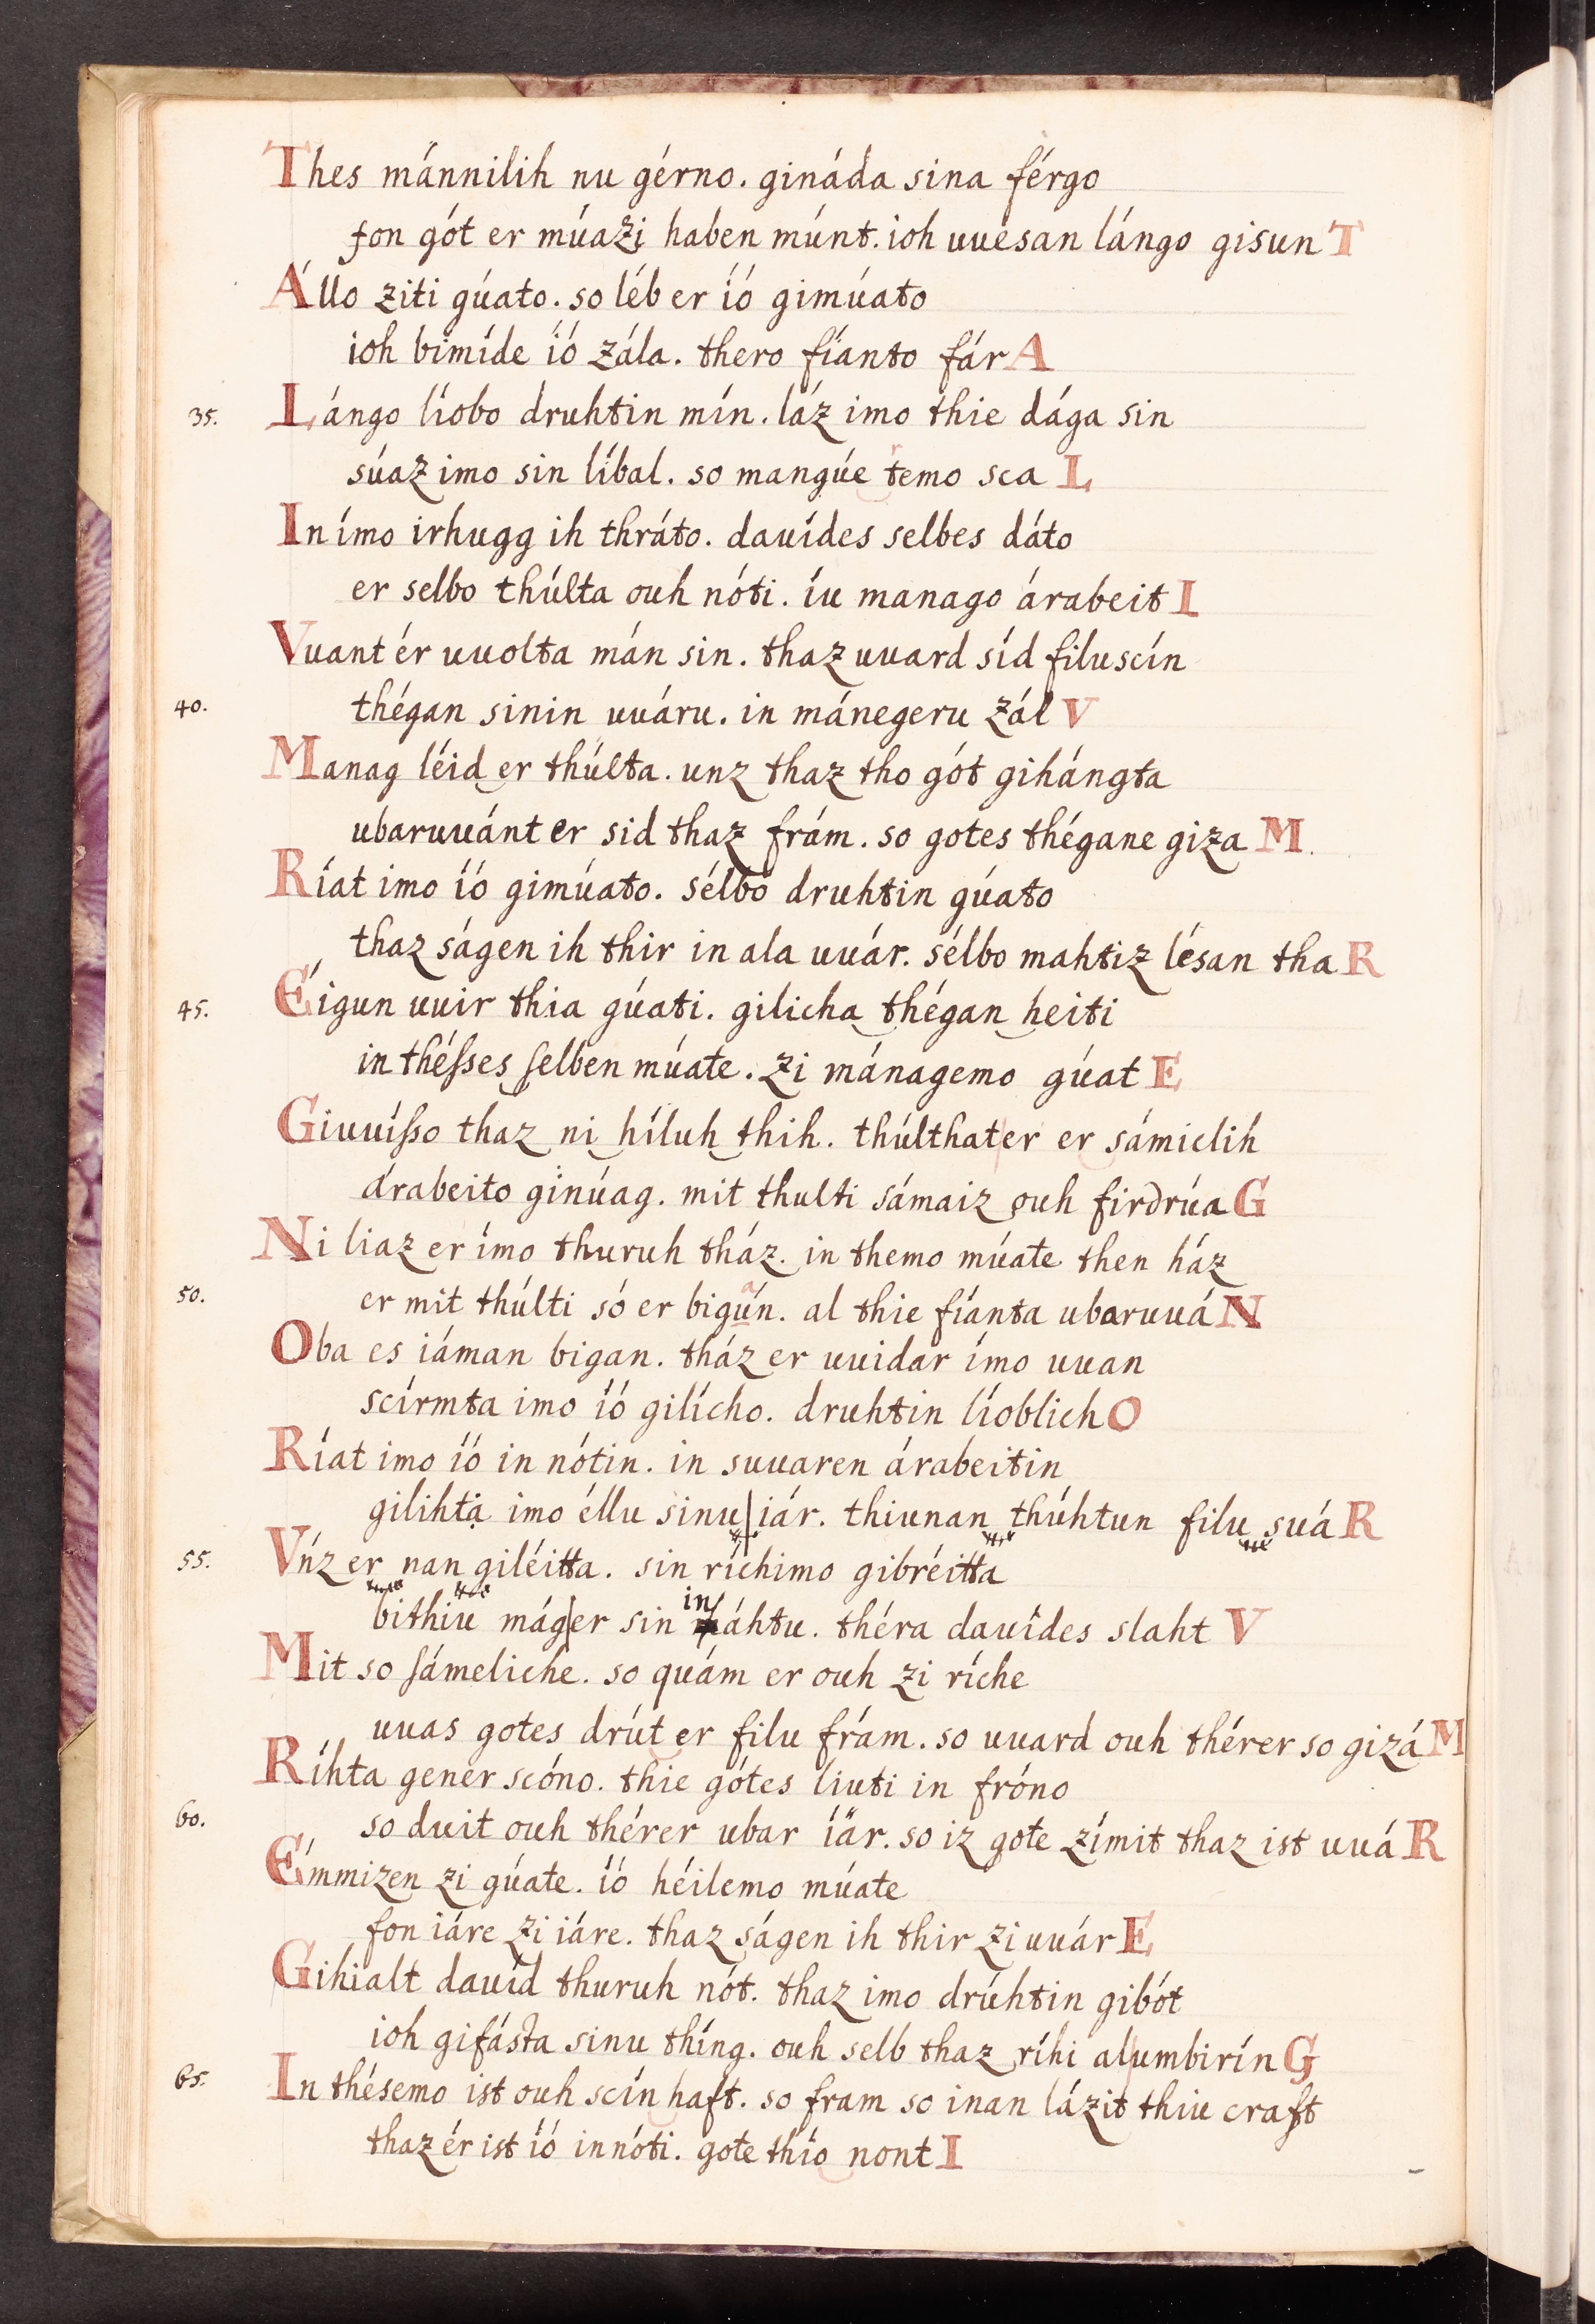 Thes männilih nu gérno. gináda sina férgo
fon gót er múazi haben múnt. ioh uuesan lángo gisunT
Állo ziti gúato. so léb er íó gimúato
ioh bimíde íó zála. thero fíanto fárA
35. Lángo líobo druhtin mín. láz imo thie dága sin
súaz imo sin líbal. so mangúe temo sca L
In ímo irhugg ih thráto. dauídes selbes dáto
er selbo thúlta ouh nóti. íu manago árabeit I
Vuant ér uuolta mán sin. thaz uuard síd filu scín
40. thégan sinin uuáru. in mánegeru zál V
Manag léid er thúlta. unz thaz tho gót gihángta
ubaruuánt er sid thaz frám. so gotes thégane giza M.
Ríat imo íó gimúato. sélbo druhtin gúato
thaz ságen ih thir in ala uuár. sélbo mahtiz lésan tha R
45. Éigun uuir thia gúati. gilicha thégan heiti
in théſses ſelben múate. zi mánagemo gúat E
Giuuíſso thaz ni híluh thih. thúlthater er sámiclih
árabeito ginúag. mit thulti sámaiz ouh firdrúa G
Ni liaz er ímo thuruh tház. in themo múate then ház
50. er mit thúlti só er bigúan. al thie fíanta ubaruuá N
Oba es iáman bigan. tház er uuidar ímo uuan
scírmta imo íó gilícho. druhtin líoblich O
Ríat imo íó in nótin. in suuaren árabeitin
gilihtạ imo éllu sinu|iár. thiunan thúhtun filu suá R
55. Vńz er nan giléitta. sin ríchimo gibréitta
bithiu mág|er sin in áhtu. théra dauídes slaht V
Mit so ſámeliche. so quám er ouh zi ríche
uuas gotes drút er filu frám. so uuard ouh thérer so gizá M
Ríhta gener scóno. thie gótes liuti in fróno
60. so duit ouh thérer ubar íär. so iz gote zímit thaz ist uuá R
Émmizen zi gúate. íó héilemo múate
fon iáre zi iáre. thaz ságen ih thir zi uuár E
Gihialt dauíd thuruh nót. thaz imo drúhtin gibót
ioh gifásta sinu thíng. ouh selb thaz ríhi alumbirín G
65. In thésemo ist ouh scín haft. so fram so inan lázit thiu craft
thaz ér ist íó in nóti. gote thío nont I